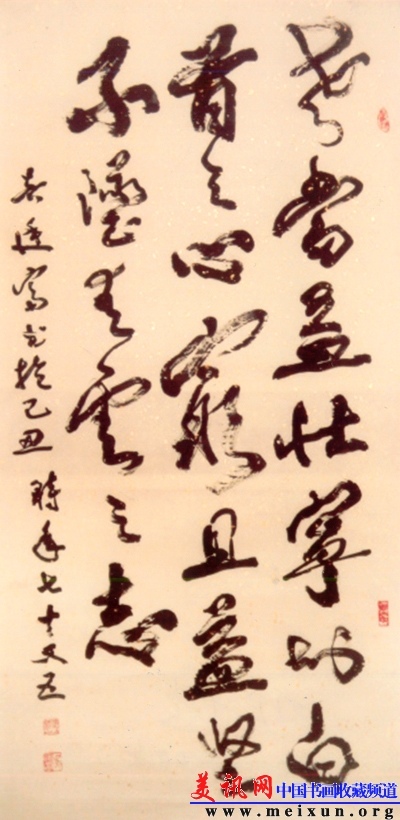 老當益壮寧知白
首之心窮且益坚
不墜青雲之志
书於乙丑 時年七十又五
美讯网 中国书画收藏频道
www.meixun.org